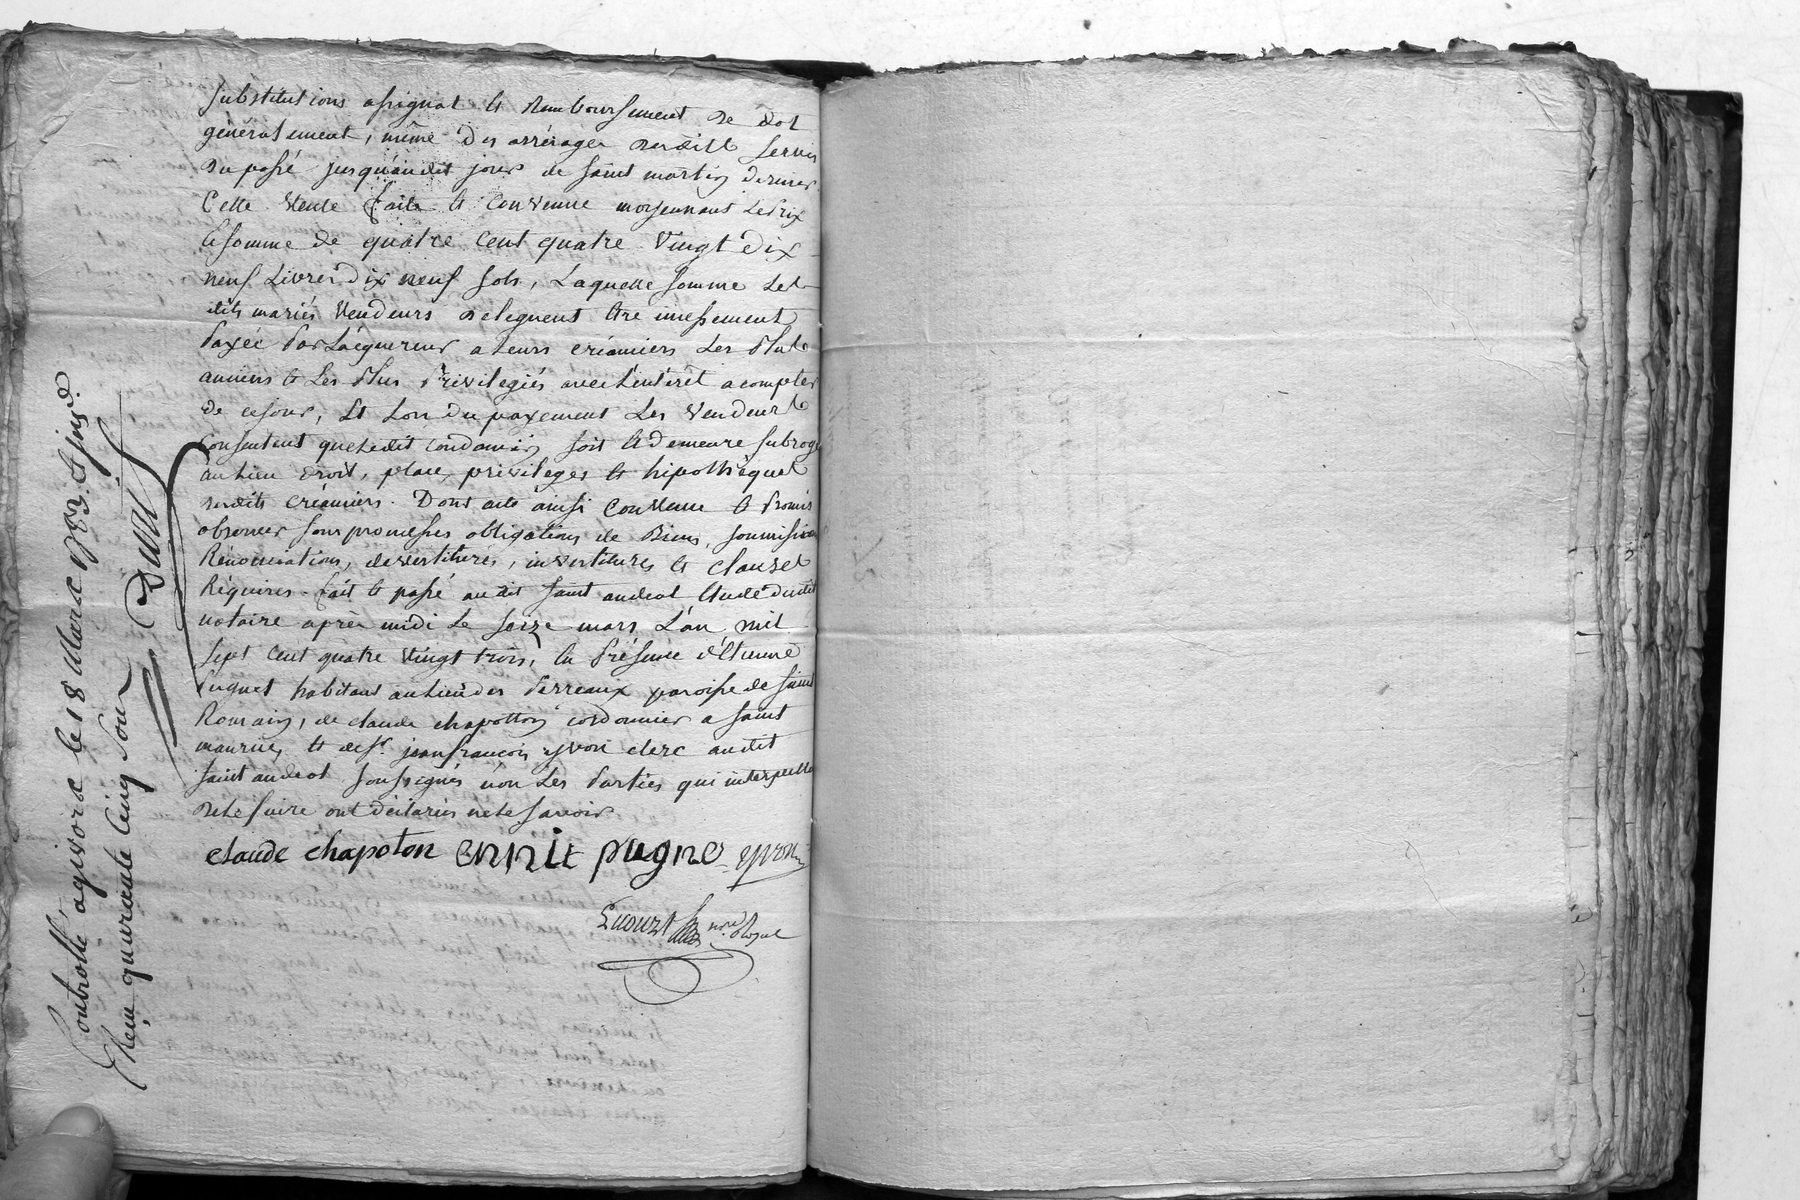 substitutions assignat & Remboursement de dot
généralement, même des arrérages desdits servis
du passé jusqu'audit jour de saint martin dernier.
Cette Vente faite & convenue moyennant le Prix
& somme de quatre cent quatre Vingt Dix
neuf Livres Dix neuf sols, Laquelle somme Les-
dits mariés Vendeurs deleguent être
Payée Par L'acquereur a Leurs créanciers Les Plus
anciens & Les Plus Privilegiés avec L'intérêt a compter
de ce jour, Et Lors du payement Les Vendeurs
Consentent que Ledit condamin soit & Demeure subrogé
au Lieu Droit, place, privileges & hipothèques
desdits créanciers. Dont acte ainsi Convenu & Promis
observer sous promesses obligations de Biens, soumissions
Renonciations, devestitures, investitures & clauses
Réquises. fait & passé audit saint andeol Etude dudit
notaire après midi Le seize mars L'an mil
sept cent quatre vingt trois, En Présence d'Etienne
Pugnet habitant au Lieu des Perreaux paroisse de saint
Romain, de claude chapotton cordonnier a saint
maurice, & de sr. jean françois yvon clerc audit
saint andeol soussignés non Les Parties qui interpellées
de Le faire ont déclarées ne le savoir
claude chapoton pugne yvon
nre. Royal
Controllé a givord le 18 Mars 1783.
Recu quarante Cinq Sous